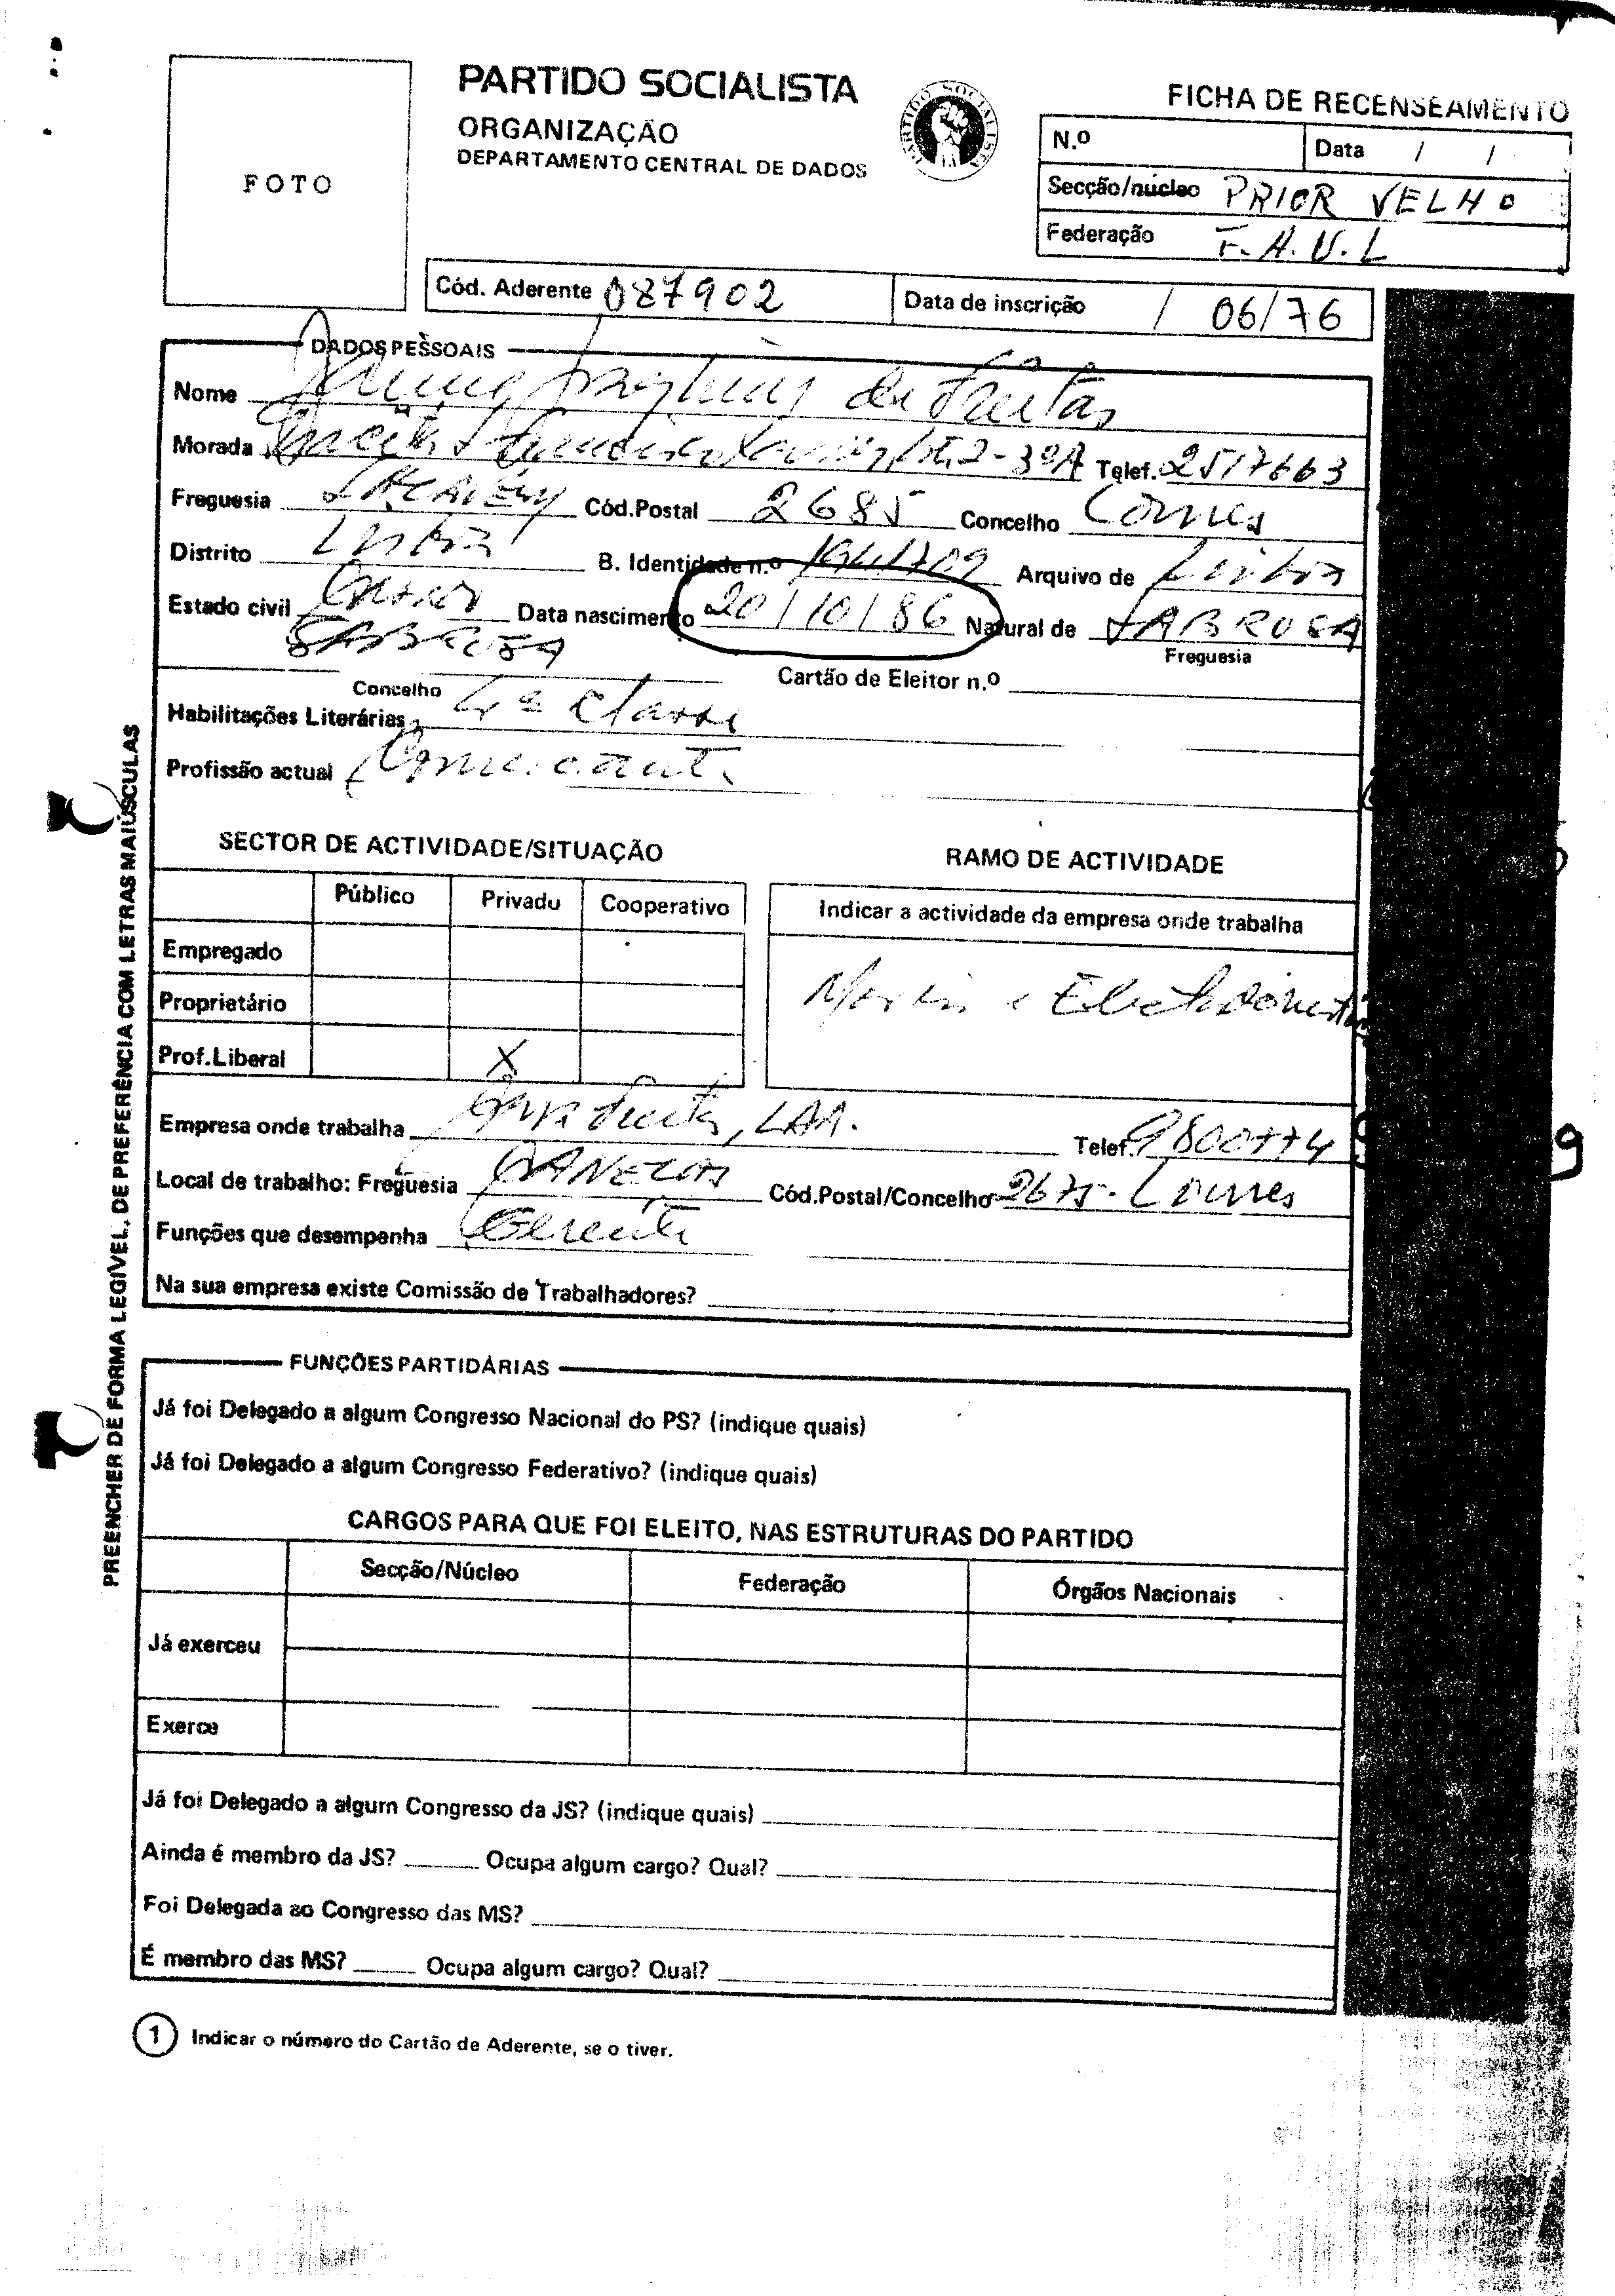 PARTIDO SOCIALISTA
ORGANIZAÇÃO
DEPARTAMENTO CENTRAL DE DADOS
PARTIDO SOCIALISTA
FOTO
FICHA DE RECENSEAMENTO
N.º Data / /
Secção/núcleo PRIOR VELHO
Federação F.A.U.L
Cód. Aderente 087902 Data de inscrição / 06/76
DADOS PESSOAIS
Nome de Freitas
Morada Francisco Xavier, 2-3ºA Telef. 2517663
Freguesia SACAVÉM Cód.Postal 2685 Concelho Loures
Distrito Lisboa B. Identidade n.º Arquivo de Lisboa
Estado civil Casado Data nascimento 20/10/86 Natural de SABROSA
Freguesia
SABROSA
Concelho
Cartão de Eleitor n.º
Habilitações Literárias 4ª classe
Profissão actual Comerciante
SECTOR DE ACTIVIDADE/SITUAÇÃO
Público Privado Cooperativo
Empregado
Proprietário
Prof.Liberal X
RAMO DE ACTIVIDADE
Indicar a actividade da empresa onde trabalha
e
Empresa onde trabalha Telef. 9800774
Local de trabalho: Freguesia CANEÇAS Cód.Postal/Concelho 2675 - Loures
Funções que desempenha Gerente
Na sua empresa existe Comissão de Trabalhadores?
FUNÇÕES PARTIDÁRIAS
Já foi Delegado a algum Congresso Nacional do PS? (indique quais)
Já foi Delegado a algum Congresso Federativo? (indique quais)
CARGOS PARA QUE FOI ELEITO, NAS ESTRUTURAS DO PARTIDO
Secção/Núcleo Federação Órgãos Nacionais
Já exerceu
Exerce
Já foi Delegado a algum Congresso da JS? (indique quais)
Ainda é membro da JS? Ocupa algum cargo? Qual?
Foi Delegada ao Congresso das MS?
É membro das MS? Ocupa algum cargo? Qual?
1 Indicar o número do Cartão de Aderente, se o tiver.
PREENCHER DE FORMA LEGÍVEL, DE PREFERÊNCIA COM LETRAS MAIÚSCULAS
9